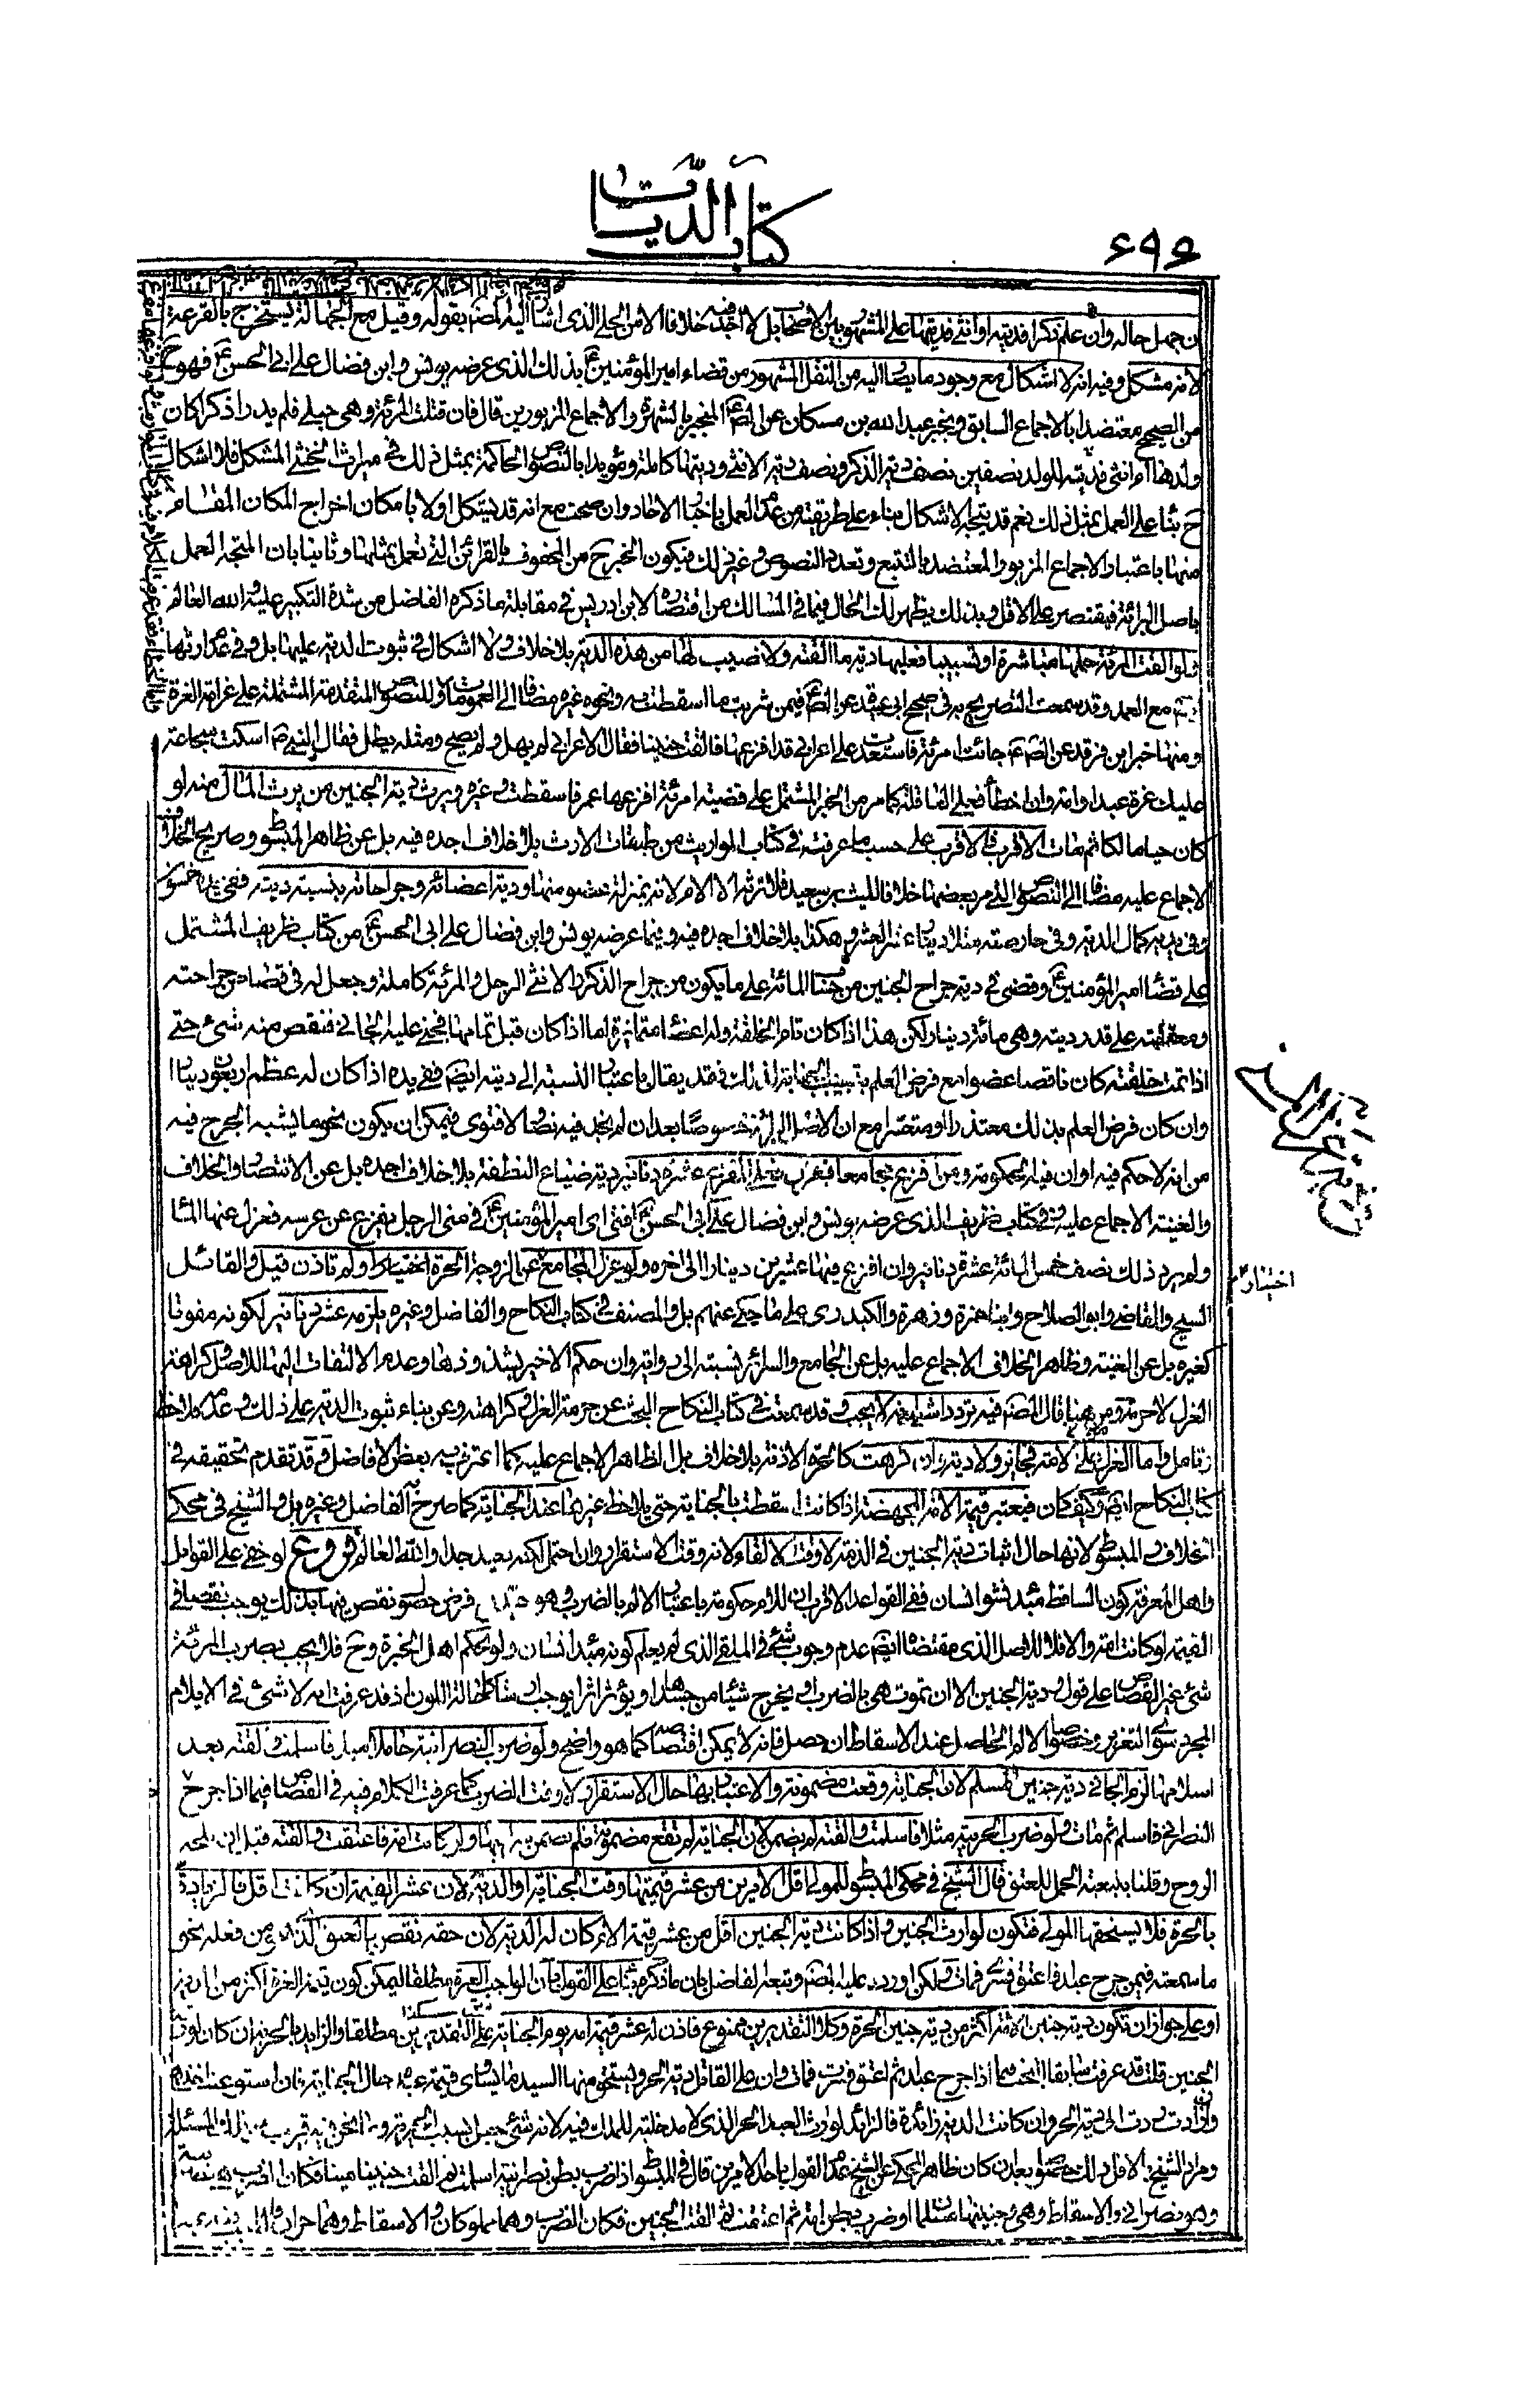 كتاب الديات
٦٩٦
ان جهل حاله وان علم ذكرا فديته او انثى فديتها على المشهور بين الاصحاب بل لا اجد فيه خلافا الا من الحلي الذي اشار اليه المصنف بقوله وقيل مع الجهالة يستخرج بالقرعة
لانه مشكل وفيه انه لا اشكال مع وجود ما يصار اليه من النقل المشهور من قضاء امير المؤمنين ع بذلك الذي عرضه يونس وابن فضال على ابي الحسن ع فهو ح
من الصحيح معتضدا بالاجماع السابق وبخبر عبد الله بن مسكان عن الصادق ع المنجبر بالشهرة والاجماع المزبورين قال فان قتلت المرئة وهي حبلى فلم يدر اذكرا كان
ولدها ام انثى فدية الولد نصفين نصف دية الذكر ونصف دية الانثى وديتها كاملة ومؤيدا بالنصوص الحاكمة بمثل ذلك في ميراث الخنثى المشكل فلا اشكال
ح بناء على العمل بمثل ذلك نعم قد يتجه الاشكال بناء على طريقته من عدم العمل باخبار الاحاد وان صحت مع انه قد يشكل اولا بامكان اخراج المكان المقام
منها باعتبار الاجماع المزبور المعتضد بالتتبع وتعدد النصوص وغير ذلك فيكون الخبر ح من المحفوف بالقرائن التي نعمل بمثلها وثانيا بان المتجه العمل
باصل البرائة فيقتصر على الاقل وبذلك يظهر لك الحال فيما في المسالك من اقتصاره لابن ادريس في مقابلة ما ذكره الفاضل من شدة النكير عليه والله العالم
ولو القت المرئة حملها مباشرة او تسبيبا فعليها دية ما القته ولا نصيب لها من هذه الدية بلا خلاف ولا اشكال في ثبوت الدية عليها بل وفي عدم ارثها
مع العمد وقد سمعت التصريح به في صحيح ابي عبيدة عن الصادق ع فيمن شربت ما اسقطت به ونحوه غيره مضافا الى العمومات والنصوص المتقدمة المشتملة على غرامة الغرة
ومنها خبر ابن فرقد عن الصادق ع جائت امرئة فاستعدت على اعرابي قد افزعها فالقت جنينا فقال الاعرابي لم يهل ولم يصح ومثله يطل فقال النبي ص اسكت سجاعة
عليك غرة عبد او امة وان اخطأ فعلى العاقلة كما مر من الخبر المشتمل على قضية امرئة افزعها عمر فاسقطت وغيره ويرث دية الجنين من يرث المال منه لو
كان حيا مالكا ثم مات الاقرب فالاقرب على حسب ما عرفته في كتاب المواريث من طبقات الارث بلا خلاف اجده فيه بل عن ظاهر المبسوط وصريح الخلاف
الاجماع عليه مضافا الى النصوص التي مر بعضها خلافا لليث بن سعيد فلا ترثه الا الام لانه بمنزلة عضو منها ودية اعضائه وجراحاته بنسبة ديته ففي يده خمسون
وفي يديه كمال الدية وفي حارصته مثلا دينار عشر العشر وهكذا بلا خلاف اجده فيه وفيما عرضه يونس وابن فضال على ابي الحسن ع من كتاب ظريف المشتمل
على قضاء امير المؤمنين ع وقضى في دية جراح الجنين من حساب المائة على ما يكون من جراح الذكر والانثى الرجل والمرئة كاملة وجعل له في قصاص جراحته
ومعقلته على قدر ديته وهي مائة دينار لكن هذا اذا كان تام الخلقة وله اعضاء متمايزة اما اذا كان قبل تمامها فجنى عليه الجاني فنقص منه شيئ حتى
اذا تمت خلقته كان ناقصا عضوا مع فرض العلم بتسبيب الجناية لذلك فقد يقال باعتبار النسبة الى ديته ايضا ففي يده اذا كان له عظم اربعون دينارا
وان كان فرض العلم بذلك متعذرا او متعسرا مع ان الاصل البرائة خصوصا بعد ان لم نجد فيه نصا ولا فتوى فيمكن ان يكون نحو ما يشبه الجرح فيه
من انه لا حكم فيه او ان فيه الحكومة ومن افزع مجامعا فعزل فعلى المفزع عشرة دنانير دية ضياع النطفة بلا خلاف اجده بل عن الانتصار والخلاف
والغنية الاجماع عليه وفي كتاب ظريف الذي عرضه يونس وابن فضال على ابي الحسن ع افتى اي امير المؤمنين ع في منى الرجل يفزع عن عرسه فعزل عنها الماء
ولم يرد ذلك نصف خمس المائة عشرة دنانير وان افزع فيها عشرين دينارا الى اخره ولو عزل المجامع عن الزوجة الحرة اختيارا ولم تاذن قيل والقائل
الشيخ والقاضي وابو الصلاح وابنا حمزة وزهرة والكيدري على ما حكي عنهم بل والمصنف في كتاب النكاح والفاضل وغيره يلزمه عشرة دنانير لكونه مفوتا
كغيره بل عن الغنية وظاهر الخلاف الاجماع عليه بل عن الجامع والسرائر نسبته الى رواية وان حكم الاخير بشذوذها وعدم الالتفات اليها للاصل وكراهة
العزل لا حرمته ومن هنا قال المصنف فيه تردد اشبهه انه لا يجب وقد سمعت في كتاب النكاح البحث عن حرمة العزل وكراهته وعن بناء ثبوت الدية على ذلك وعدمه فلاحظ
وتامل واما العزل عن الامة فجائز ولا دية وان كرهت كالحرة الاذنة بلا خلاف بل الظاهر الاجماع عليه كما اعترف به بعض الافاضل وقد تقدم تحقيقه في
كتاب النكاح ايضا وكيف كان فيعتبر قيمة الامة المجهضة اذا كانت اسقطت بالجناية حتى يلاحظ عشرها عند الجناية كما صرح به الفاضل وغيره بل والشيخ في محكي
الخلاف والمبسوط لانها حال اثبات دية الجنين في الذمة لا وقت الالقاء لانه وقت الاستقرار وان احتمل لكنه بعيد جدا والله العالم فروع لو خفي على القوابل
واهل المعرفة كون الساقط مبدء نشو انسان ففي القواعد الاقرب ان للام حكومة باعتبار الالم بالضرب وهو
القيمة لو كانت امة والا فلا للاصل الذي مقتضاه ايضا عدم وجوب شيئ في الملقى الذي لم يعلم كونه مبدء انسان ولو بحكم اهل الخبرة وح فلا يجب بضرب المرئة
شيئ غير القصاص على قول ودية الجنين الا ان تموت هي بالضرب او يخرج شيئا من جسدها او يؤثر اثرا يوجب ارشا كاحالة اللون اذ قد عرفت انه لا شيئ في الايلام
المجرد سوى التعزير وخصوصا الالم الحاصل عند الاسقاط ان حصل فانه لا يمكن اقتصاصه كما هو واضح ولو ضرب النصرانية حاملا فاسلمت والقته بعد
اسلامها الزم الجاني دية جنين المسلم لان الجناية وقعت مضمونة والاعتبار بها حال الاستقرار لا وقت الضرب كما عرفت الكلام فيه في القصاص فيما اذا جرح
النصراني فاسلم ثم مات ولو ضرب الحربية مثلا فاسلمت والقته لم يضمن لان الجناية لم تقع مضمونة فلم يضمن سرايتها ولو كانت امة فاعتقت والقته قبل ان يلجه
الروح وقلنا بتبعية الحمل للعتق قال الشيخ في محكي المبسوط للمولى اقل الامرين من عشر قيمتها وقت الجناية او الدية لان عشر القيمة ان كانت اقل فالزيادة
بالحرة فلا يستحقها المولى فتكون لوارث الجنين واذا كانت دية الجنين اقل من عشر قيمة الام كان له الدية لان حقه نقص بالعتق الذي هو من فعله نحو
ما سمعته فيمن جرح عبدا فاعتق فسرى فمات ولكن اورد عليه المصنف وتبعه الفاضل بان ما ذكره بناء على القول بان الواجب الغرة مطلقا ليمكن كون قيمة الغرة اكثر من
او على جواز ان تكون دية جنين الامة اكثر من دية جنين الحرة وكلا التقديرين ممنوع فاذن له عشر قيمة امه يوم الجناية على التقديرين مطلقا والزائد بالحرية ان كان لوارث
الجنين قلت قد عرفت سابقا البحث فيما اذا جرح عبد ثم اعتق فسرت فمات وان على القاتل دية الحر ويستحق منها السيد ما يساوي قيمته حال الجناية
وان زادت ردت الى دية الحر وان كانت الدية زائدة فالزائد لوارث العبد الحر الذي لا مدخلية للملك فيه لانه شيئ حصل بسبب الحرية
ومراد الشيخ بالاقل ذلك
وهو نصراني والاسقاط وهي وجنينها مسلمان او ضرب بطن امة ثم اعتقت ثم القت الجنين فكان الضرب وهما مملوكان والاسقاط وهما حران
اختيارا